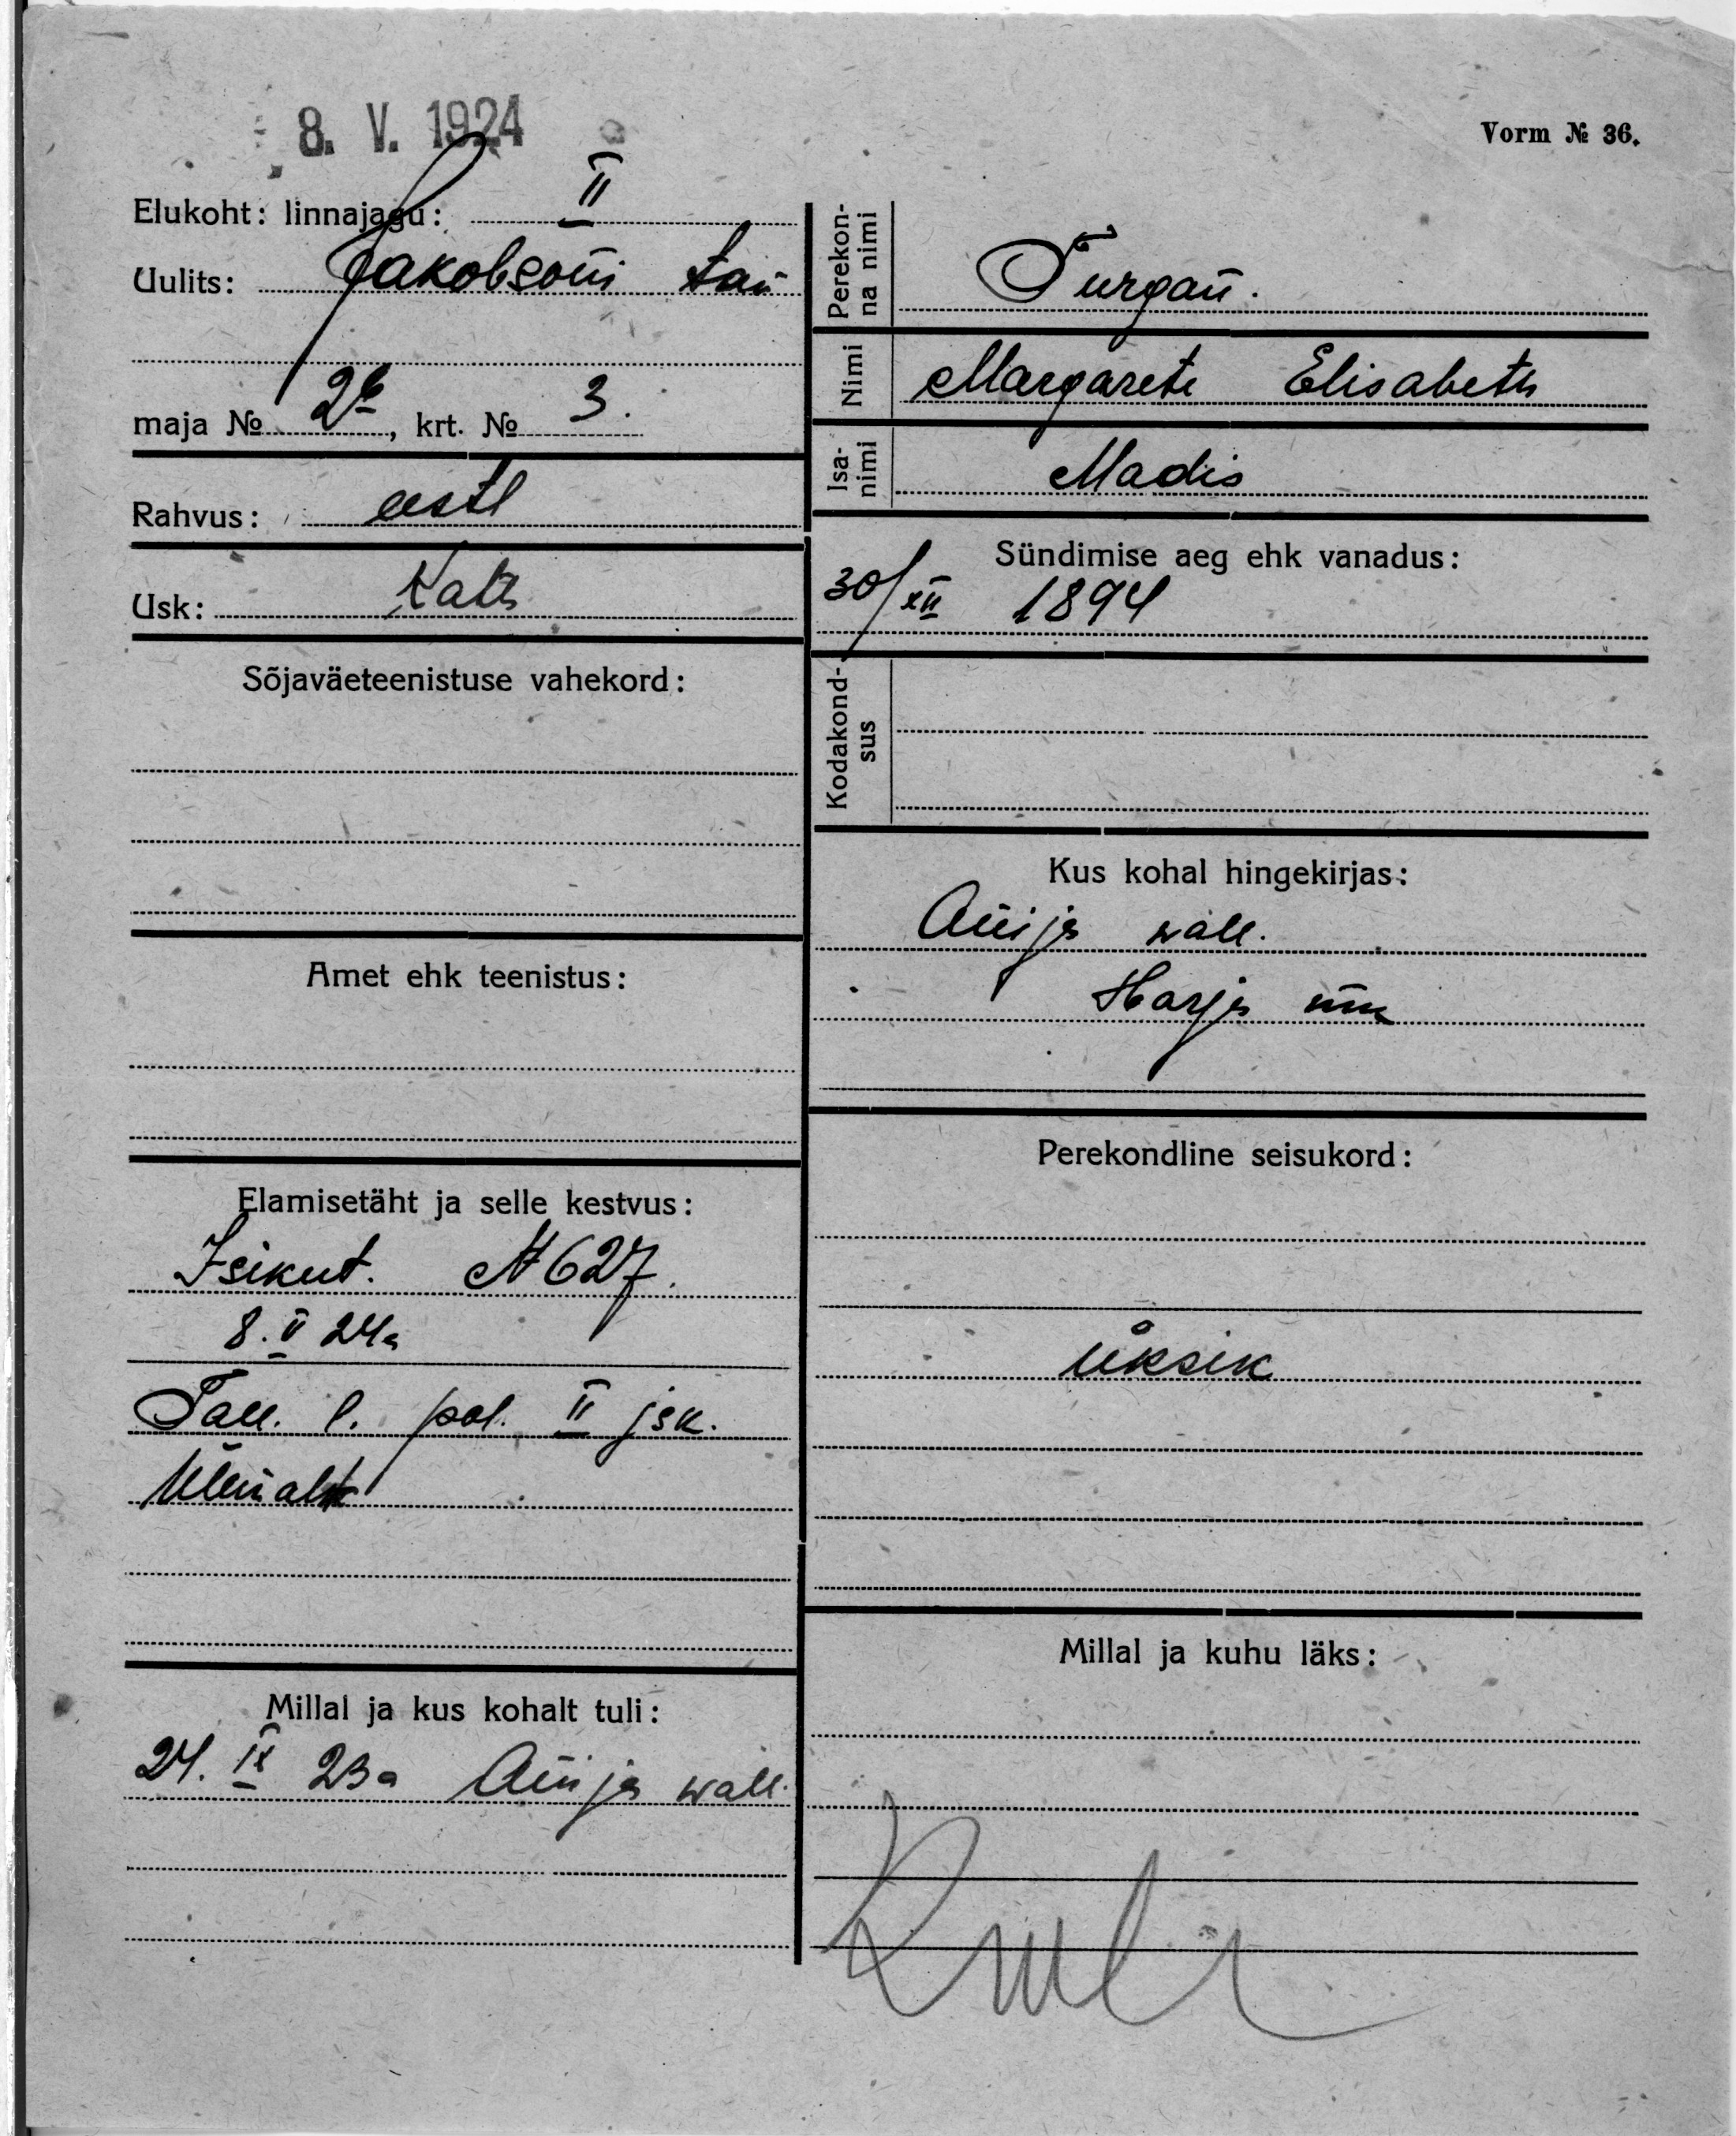 8. V. 1924
Vorm № 36.
Elukoht: linnajagu: II
Uulits: Jakobsoni tän
maja № 2b, krt. № 3.
Rahvus: eestl
Usk:
Sõjaväeteenistuse vahekord:
Amet ehk teenistus:
Elamisetäht ja selle kestvus:
Isikut. № 627.
8. V 24a
Tall. l. pol. II jsk.
Ülemalt
Millal ja kus kohalt tuli:
24. IX 23a Anija wall.
Perekonna nimi
Turgan.
Nimi
Margarete Elisabeth
Isanimi
Madis
Sündimise aeg ehk vanadus:
30/XII 1894
Kodakondsus
Kus kohal hingekirjas:
Anija wall.
Harju mk
Perekondline seisukord:
üksik
Millal ja kuhu läks: